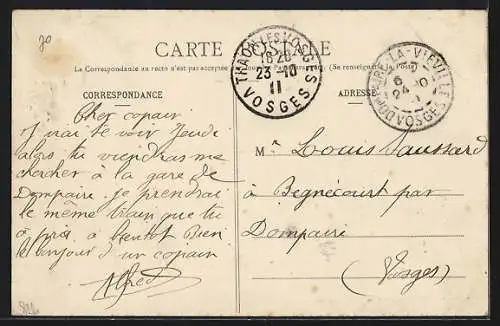 70
CARTE POSTALE
La Correspondance au recto n'est pas acceptée (Se renseigner Poste)
THAON-LES-VOSGES VOSGES
18 20
23-10
11
LA-VIÉVILLE VOSGES
6
24 10
11
CORRESPONDANCE
ADRESSE
Cher copain
J irai te voir Jeudi
alors tu viendras me
chercher à la gare de
Dompaire je prendrai
le même train que tu
a pris à bientot Bien
le bonjour d'un copain
Alfred
Mr Louis
à Begnécourt par
Dompaire
(Vosges)